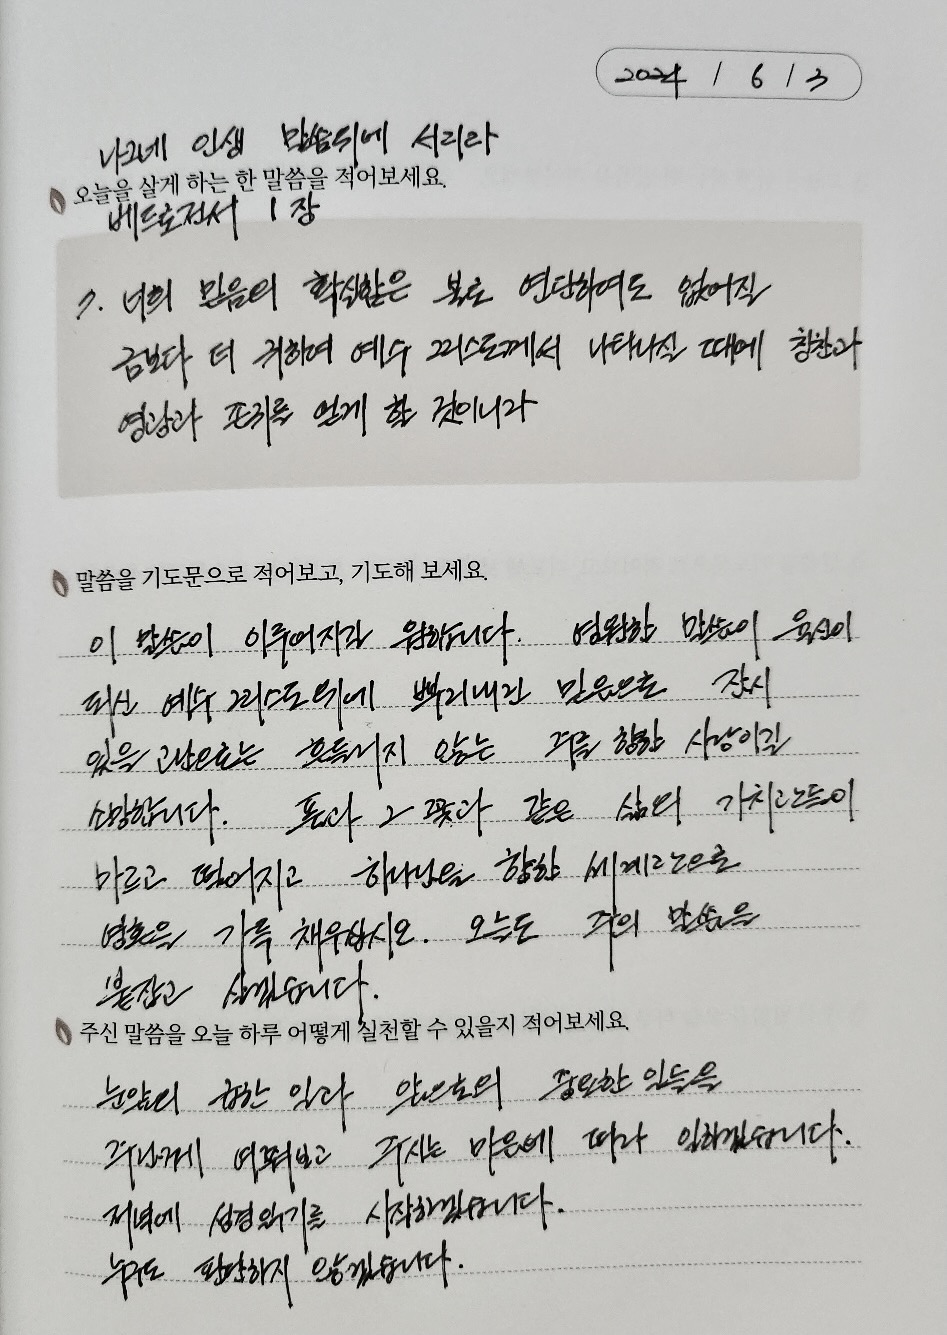 2024 / 6 / 3
나그네 인생 말씀위에 서리라
오늘을 살게 하는 한 말씀을 적어보세요.
베드로전서 1장
7. 너희 믿음의 확실함은 불로 연단하여도 없어질
금보다 더 귀하여 예수 그리스도께서 나타나실 때에 칭찬과
영광과 존귀를 얻게 할 것이니라
말씀을 기도문으로 적어보고, 기도해 보세요.
이 말씀이 이루어지길 원합니다. 영원한 말씀이 육신이
되신 예수 그리스도위에 뿌리내린 믿음으로 잠시
있을 고난으로는 흔들리지 않는 주를 향한 사랑이길
소망합니다. 풀과 그 꽃과 같은 삶의 가치관들이
마르고 떨어지고 하나님을 향한 세계관으로
영혼을 가득 채우십시오. 오늘도 주의 말씀을
붙잡고 살겠습니다.
주신 말씀을 오늘 하루 어떻게 실천할 수 있을지 적어보세요.
눈앞의 급한 일과 앞으로의 중요한 일들을
주님께 여쭤보고 주시는 마음에 따라 일하겠습니다.
저녁에 성경읽기를 시작하겠습니다.
누구도 판단하지 않겠습니다.